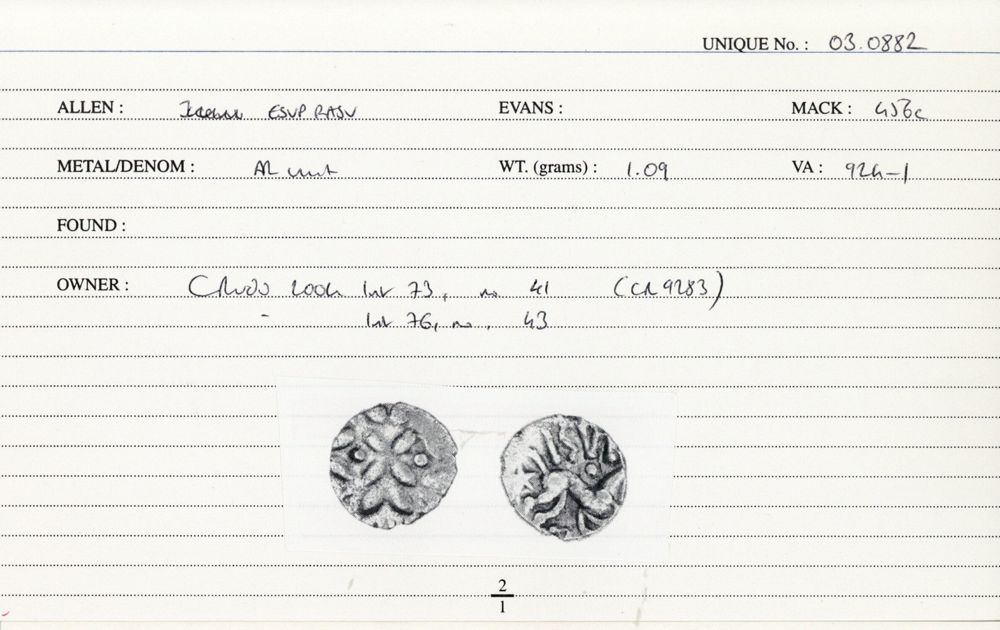 UNIQUE No. : 03.0882
ALLEN : Icenian ESVP RASV EVANS : MACK : 456c
METAL/DENOM : AR unit WT. (grams) : 1.09 VA : 924-1
FOUND :
OWNER : 2004 list 73, no. 41 (CR 9283)
- list 76, no. 43
2
1